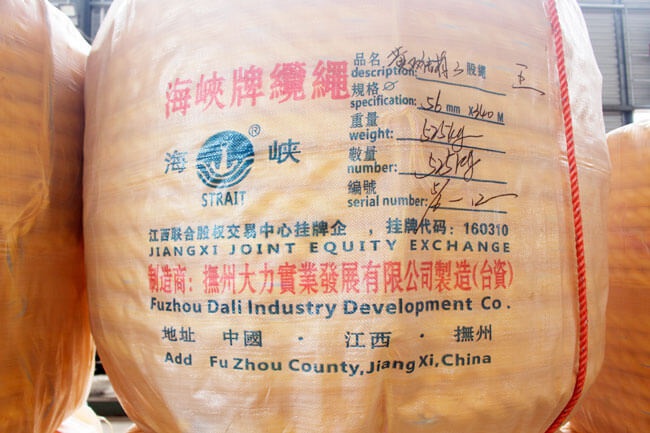 海峽牌纜繩
品名 股繩
description:
規格 ø
specification: 56 mm x340 M
重量
weight: 525kg
數量
number: 525kg
編號
serial number:
王
海 ® 峽
STRAIT
江西联合股权交易中心挂牌企 ，挂牌代码：160310
JIANGXI JOINT EQUITY EXCHANGE
制造商：撫州大力實業發展有限公司製造(台資)
Fuzhou Dali Industry Development Co .
地址 中國 · 江西 · 撫州
Add Fu Zhou County,JiangXi,China